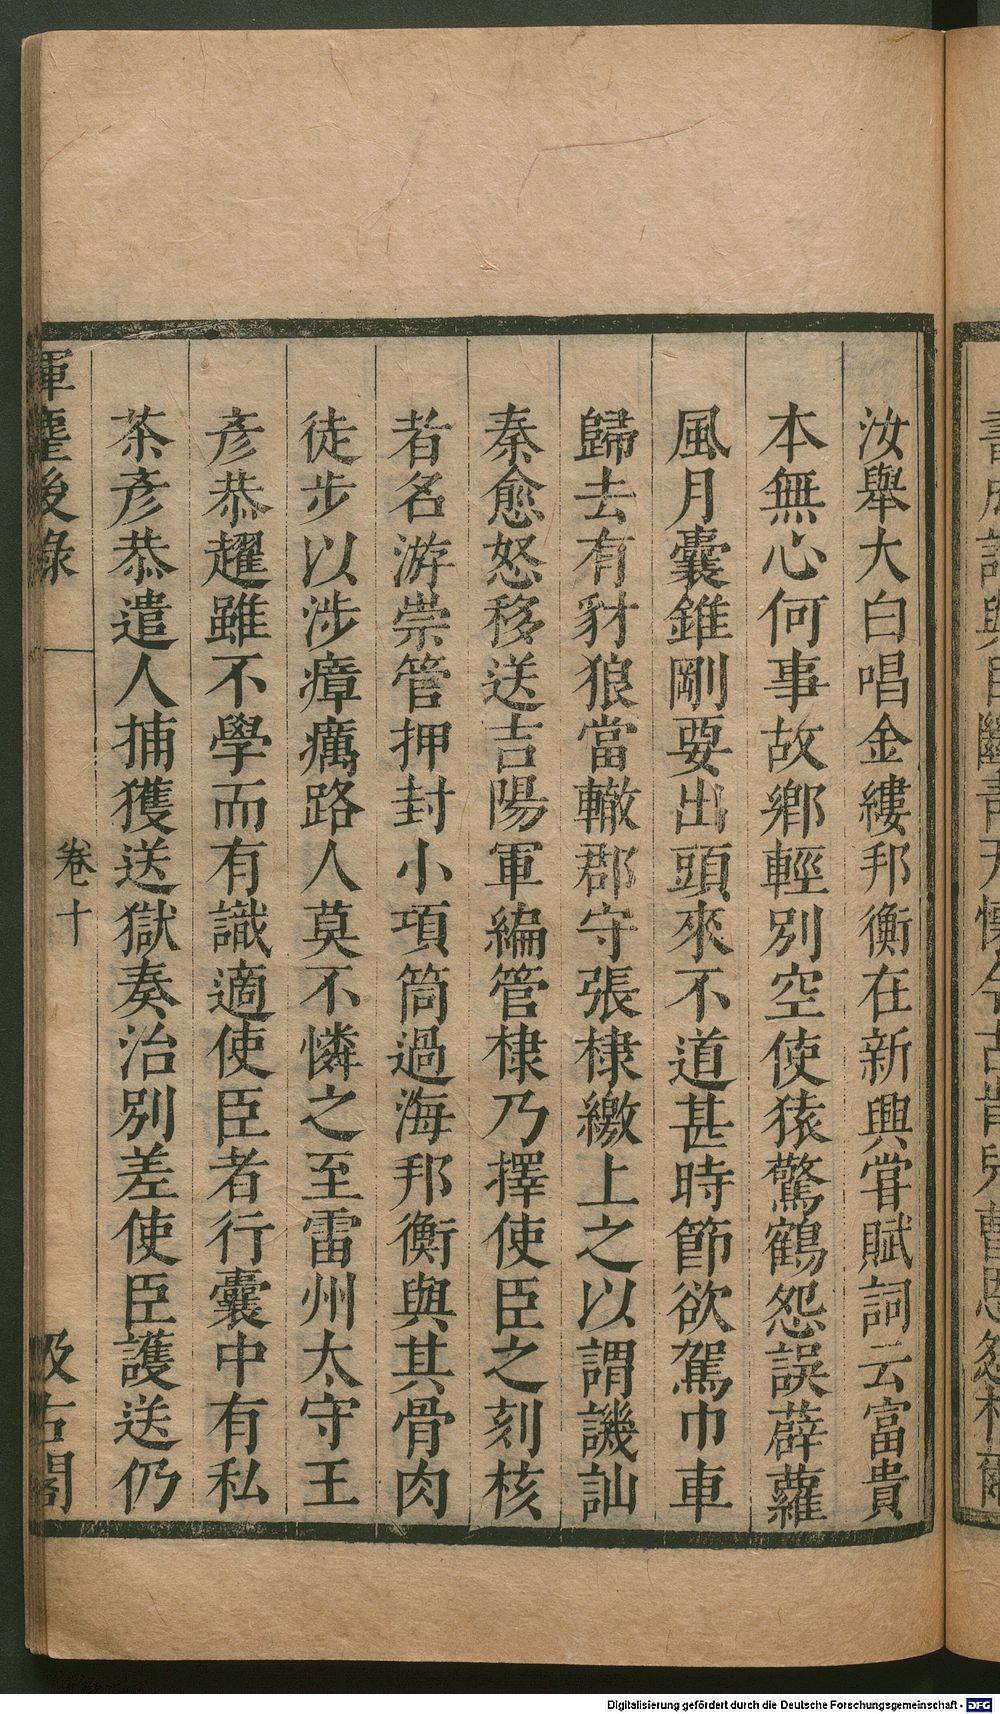 汝舉大白唱金縷邦衡在新興甞賦詞云富貴
本無心何事故鄉輕別空使猿驚鶴怨誤薜蘿
風月囊錐剛要出頭來不道甚時節欲駕巾車
歸去有豺狼當轍郡守張棣繳上之以謂譏訕
秦愈怒移送吉陽軍編管棣乃擇使臣之刻核
者名游崇管押封小項筒過海邦衡與其骨肉
徒步以涉瘴癘路人莫不憐之至雷州太守王
彥恭趯雖不學而有識適使臣者行囊中有私
茶彥恭遣人捕獲送獄奏治別差使臣護送仍
揮麈後錄
卷十
汲古閣
Digitalisierung gefördert durch die Deutsche Forschungsgemeinschaft - DFG